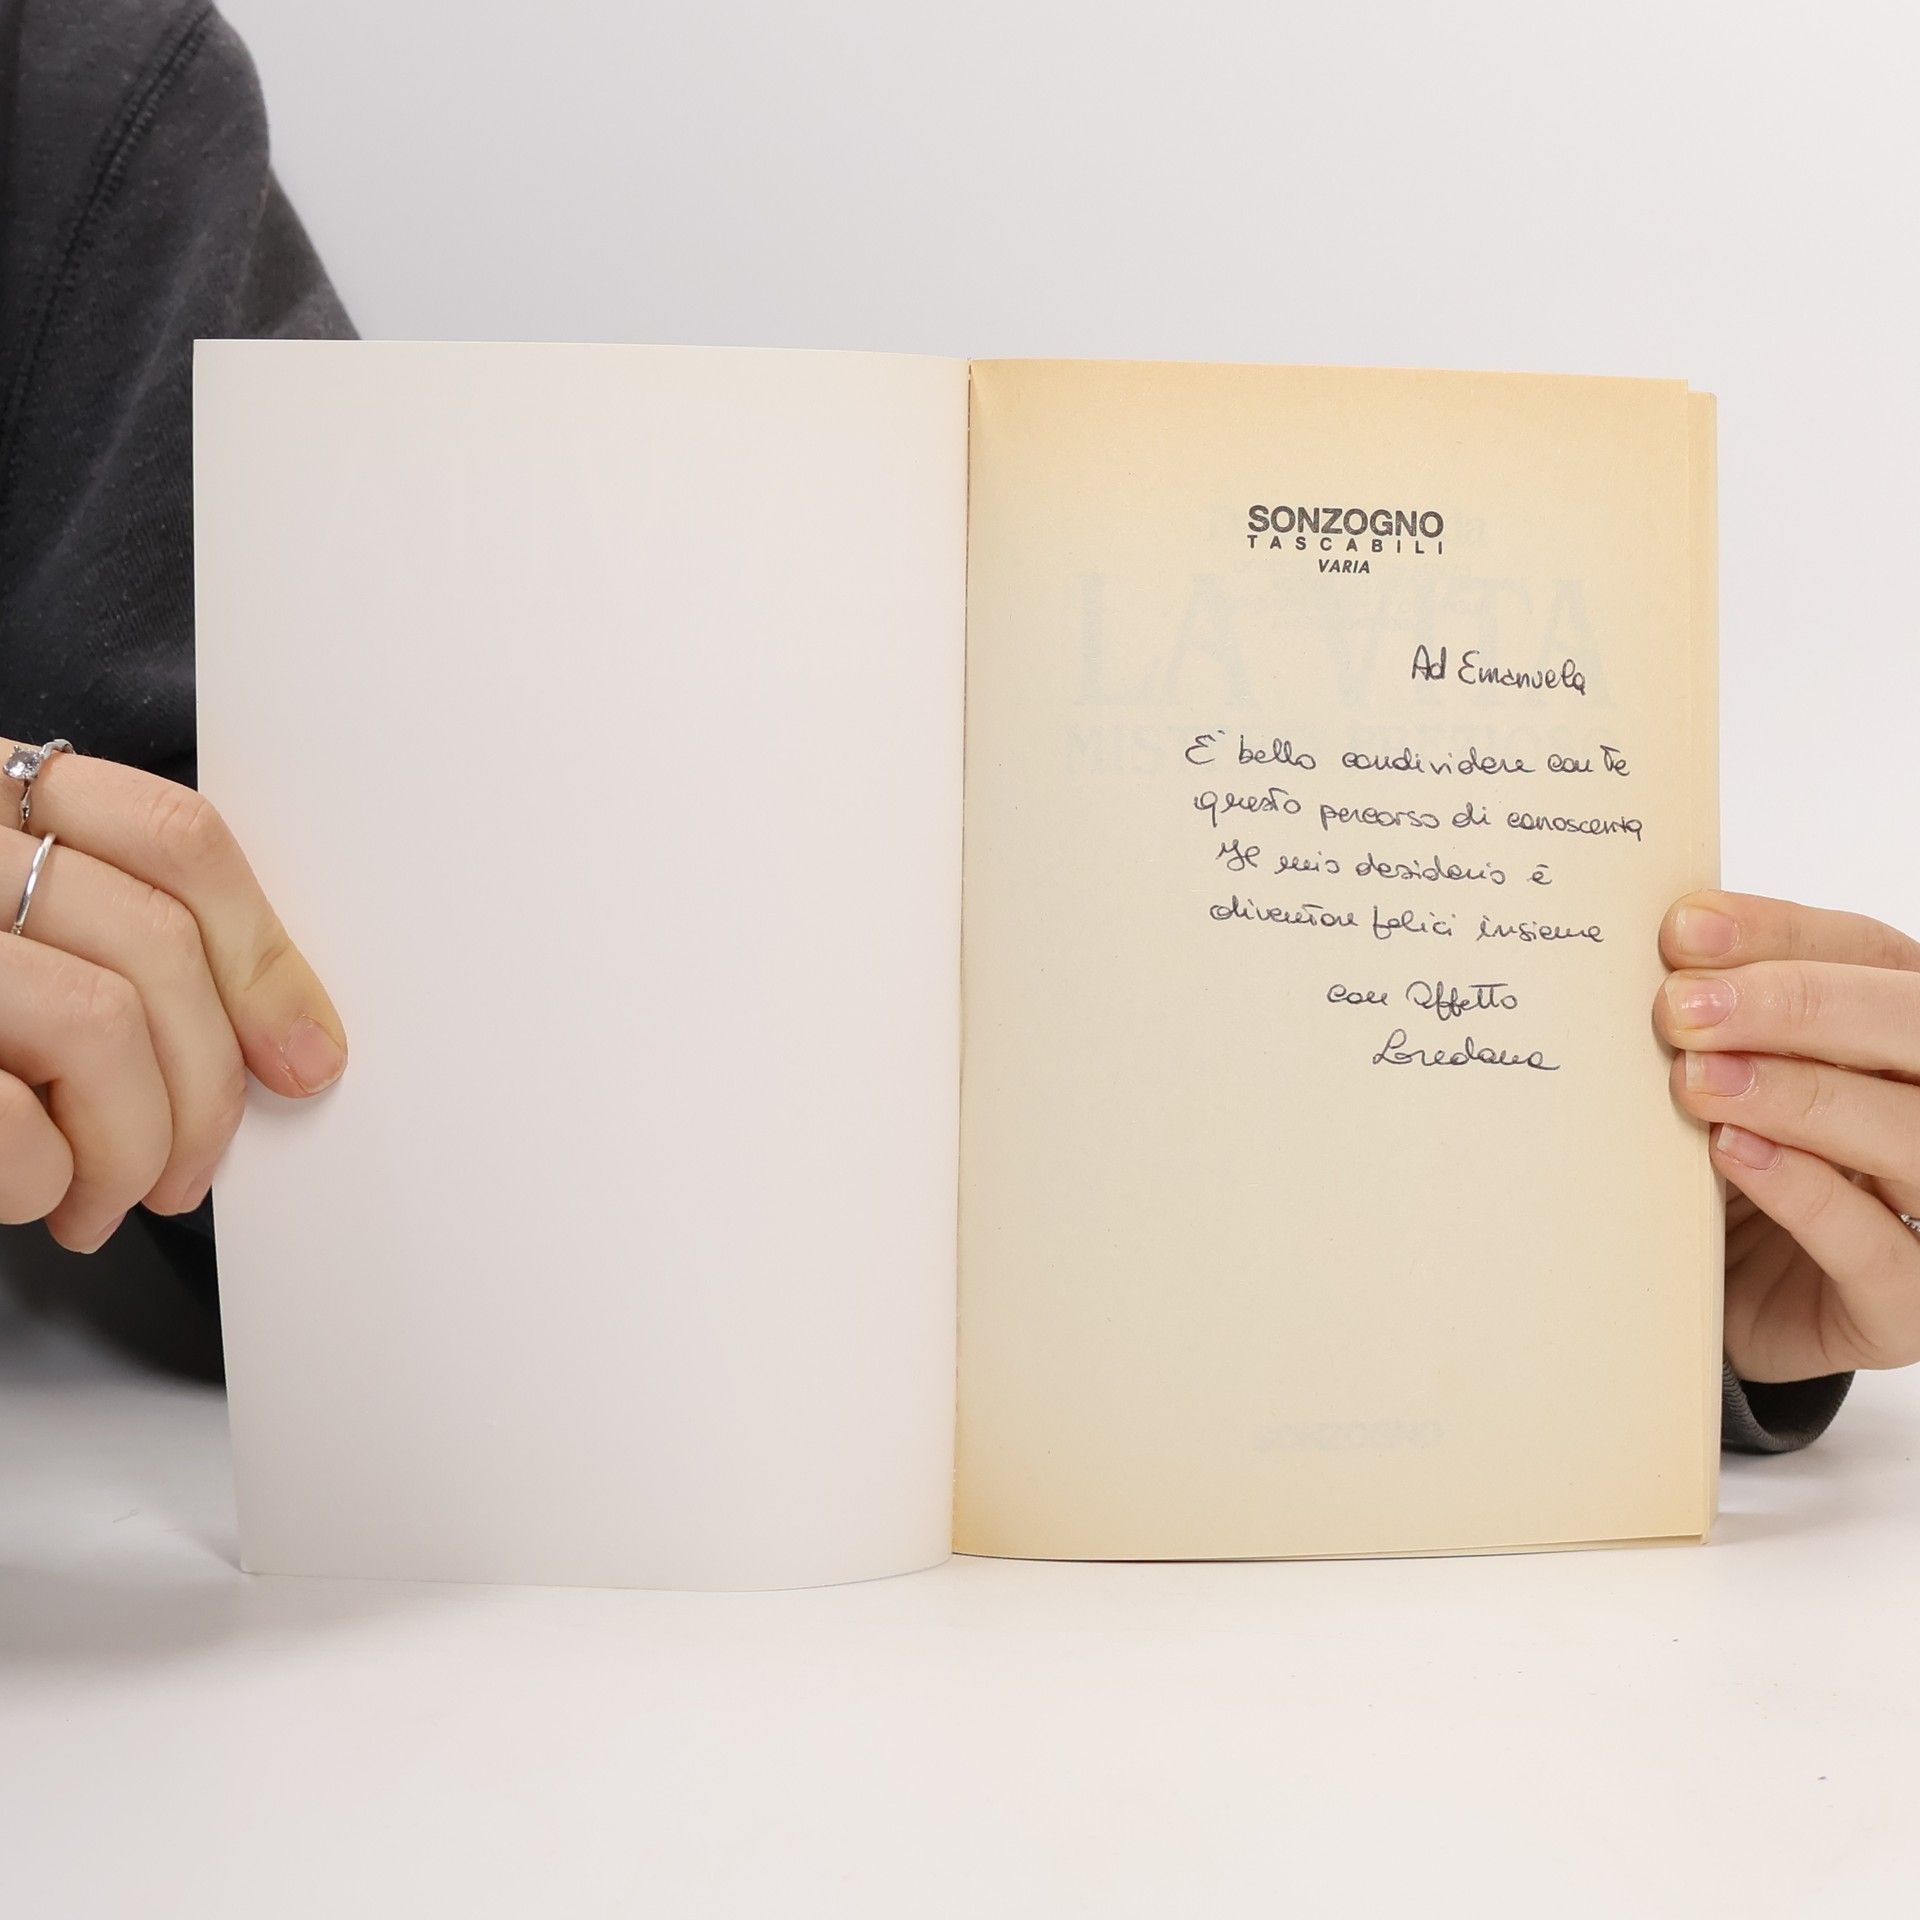 SONZOGNO
TASCABILI
VARIA
LA VITA
Ad Emanuela
E' bello condividere con te
questo percorso di conoscenza
Il mio desiderio è
diventare felici insieme
con affetto
Loredana